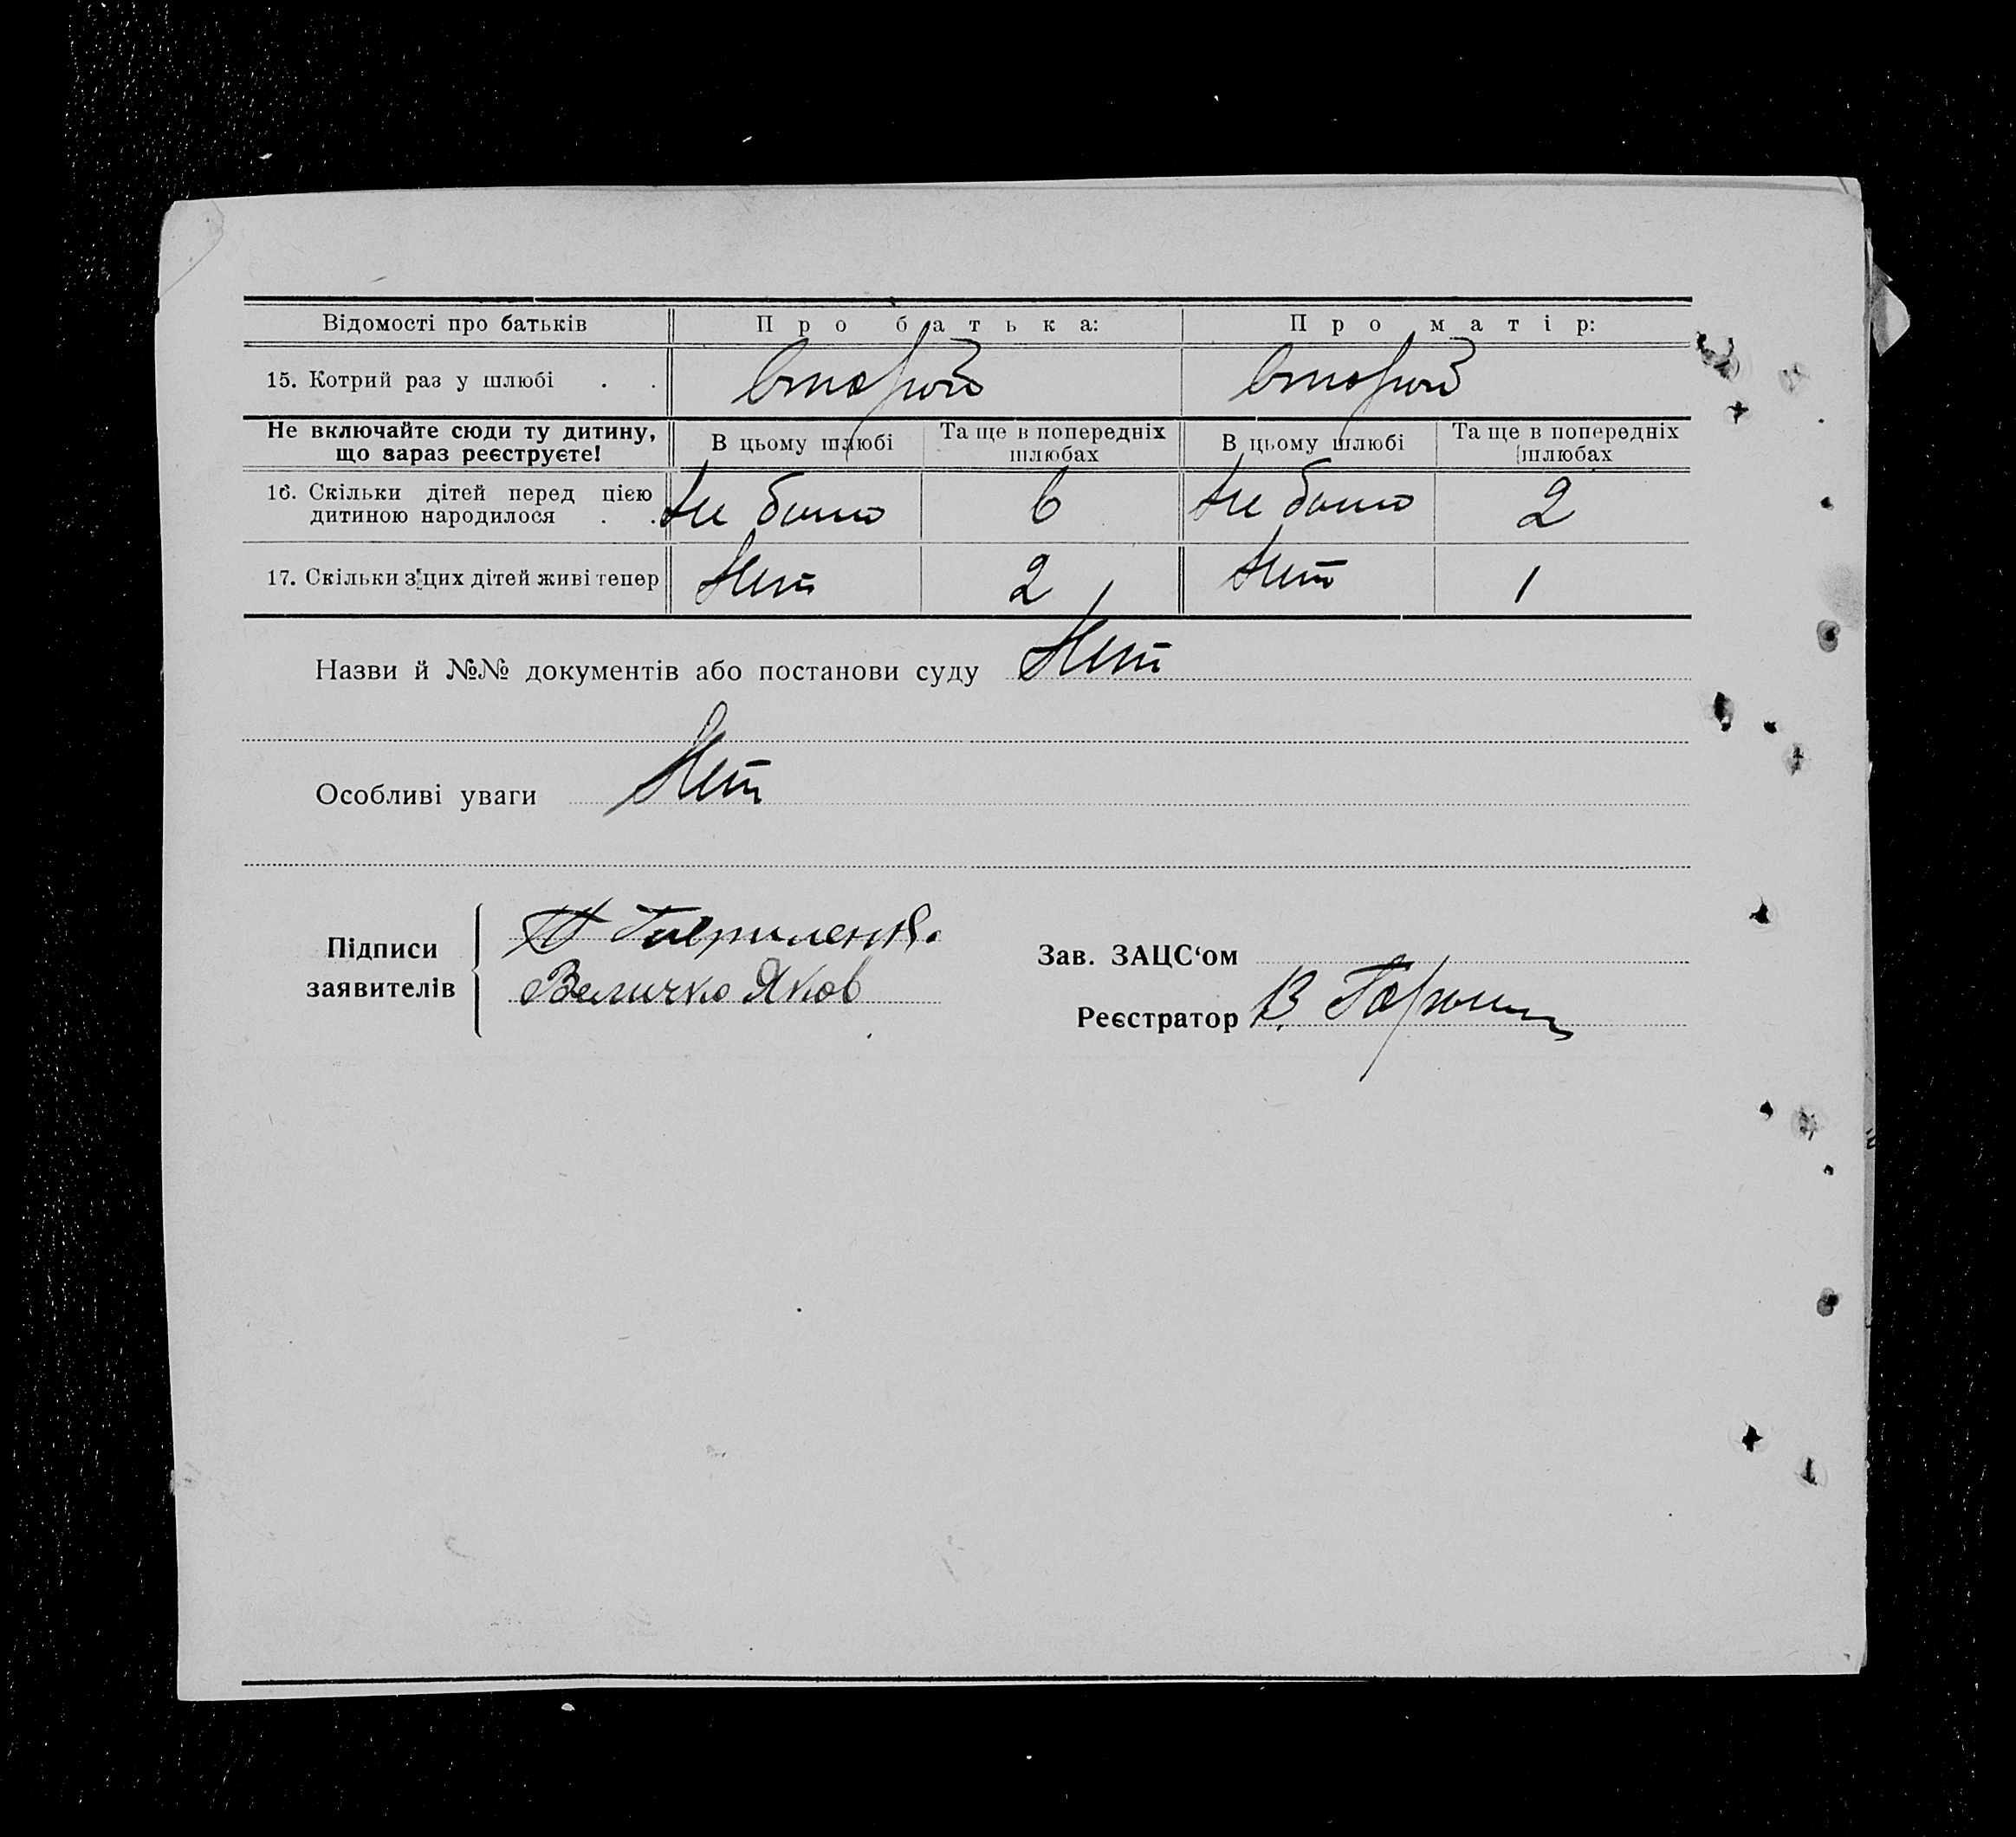 Відомості про батьків Про батька: Про матір:
15. Котрий раз у шлюбі . . второй второй
Не включайте сюди ту дитину, що зараз реєструєте! В цьому шлюбі Та ще в попередніх шлюбах В цьому шлюбі Та ще в попередніх шлюбах
16. Скільки дітей перед цією
дитиною народилося . . не было 6 не было 2
17. Скільки з цих дітей живі тепер Нет 2 Нет 1
Назви й №№ документів або постанови суду Нет
Особливі уваги Нет
Підписи
заявителів
Величко Яков
Зав. ЗАЦС‘ом
Реєстратор В.